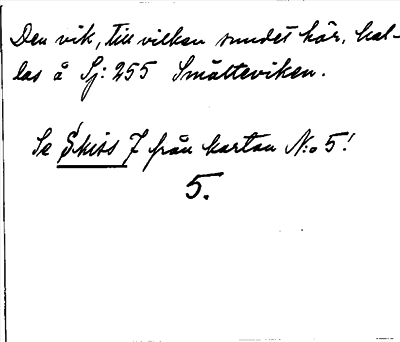 Den vik, till vilken sundet hör, kal-
las å Sj: 255 Smätteviken.
Se Skiss 7 från kartan N:o 5!
5.